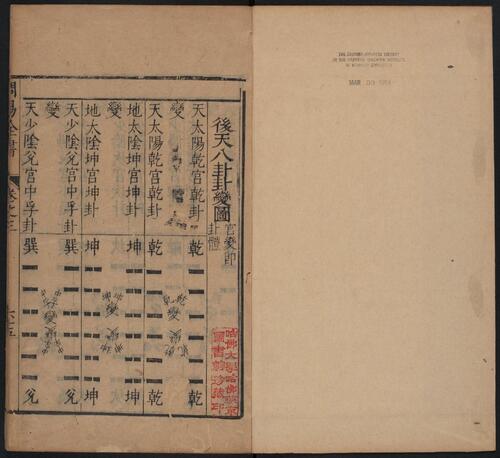 後天八卦卦變圖
官變即
卦體
天太陽乾宮乾卦 乾 乾
變
天太陽乾宮乾卦 乾 乾
地太陰坤宮坤卦 坤 坤
變
地太陰坤宮坤卦 坤 坤
天少陰兌宮中孚卦 巽 兌
變
天少陰兌宮中孚卦 巽 兌
易全書
卷之三
哈佛大學哈佛燕京
圖書館珍藏印
THE CHINESE-JAPANESE LIBRARY
OF THE HARVARD-YENCHING INSTITUTE
AT HARVARD UNIVERSITY
MAR